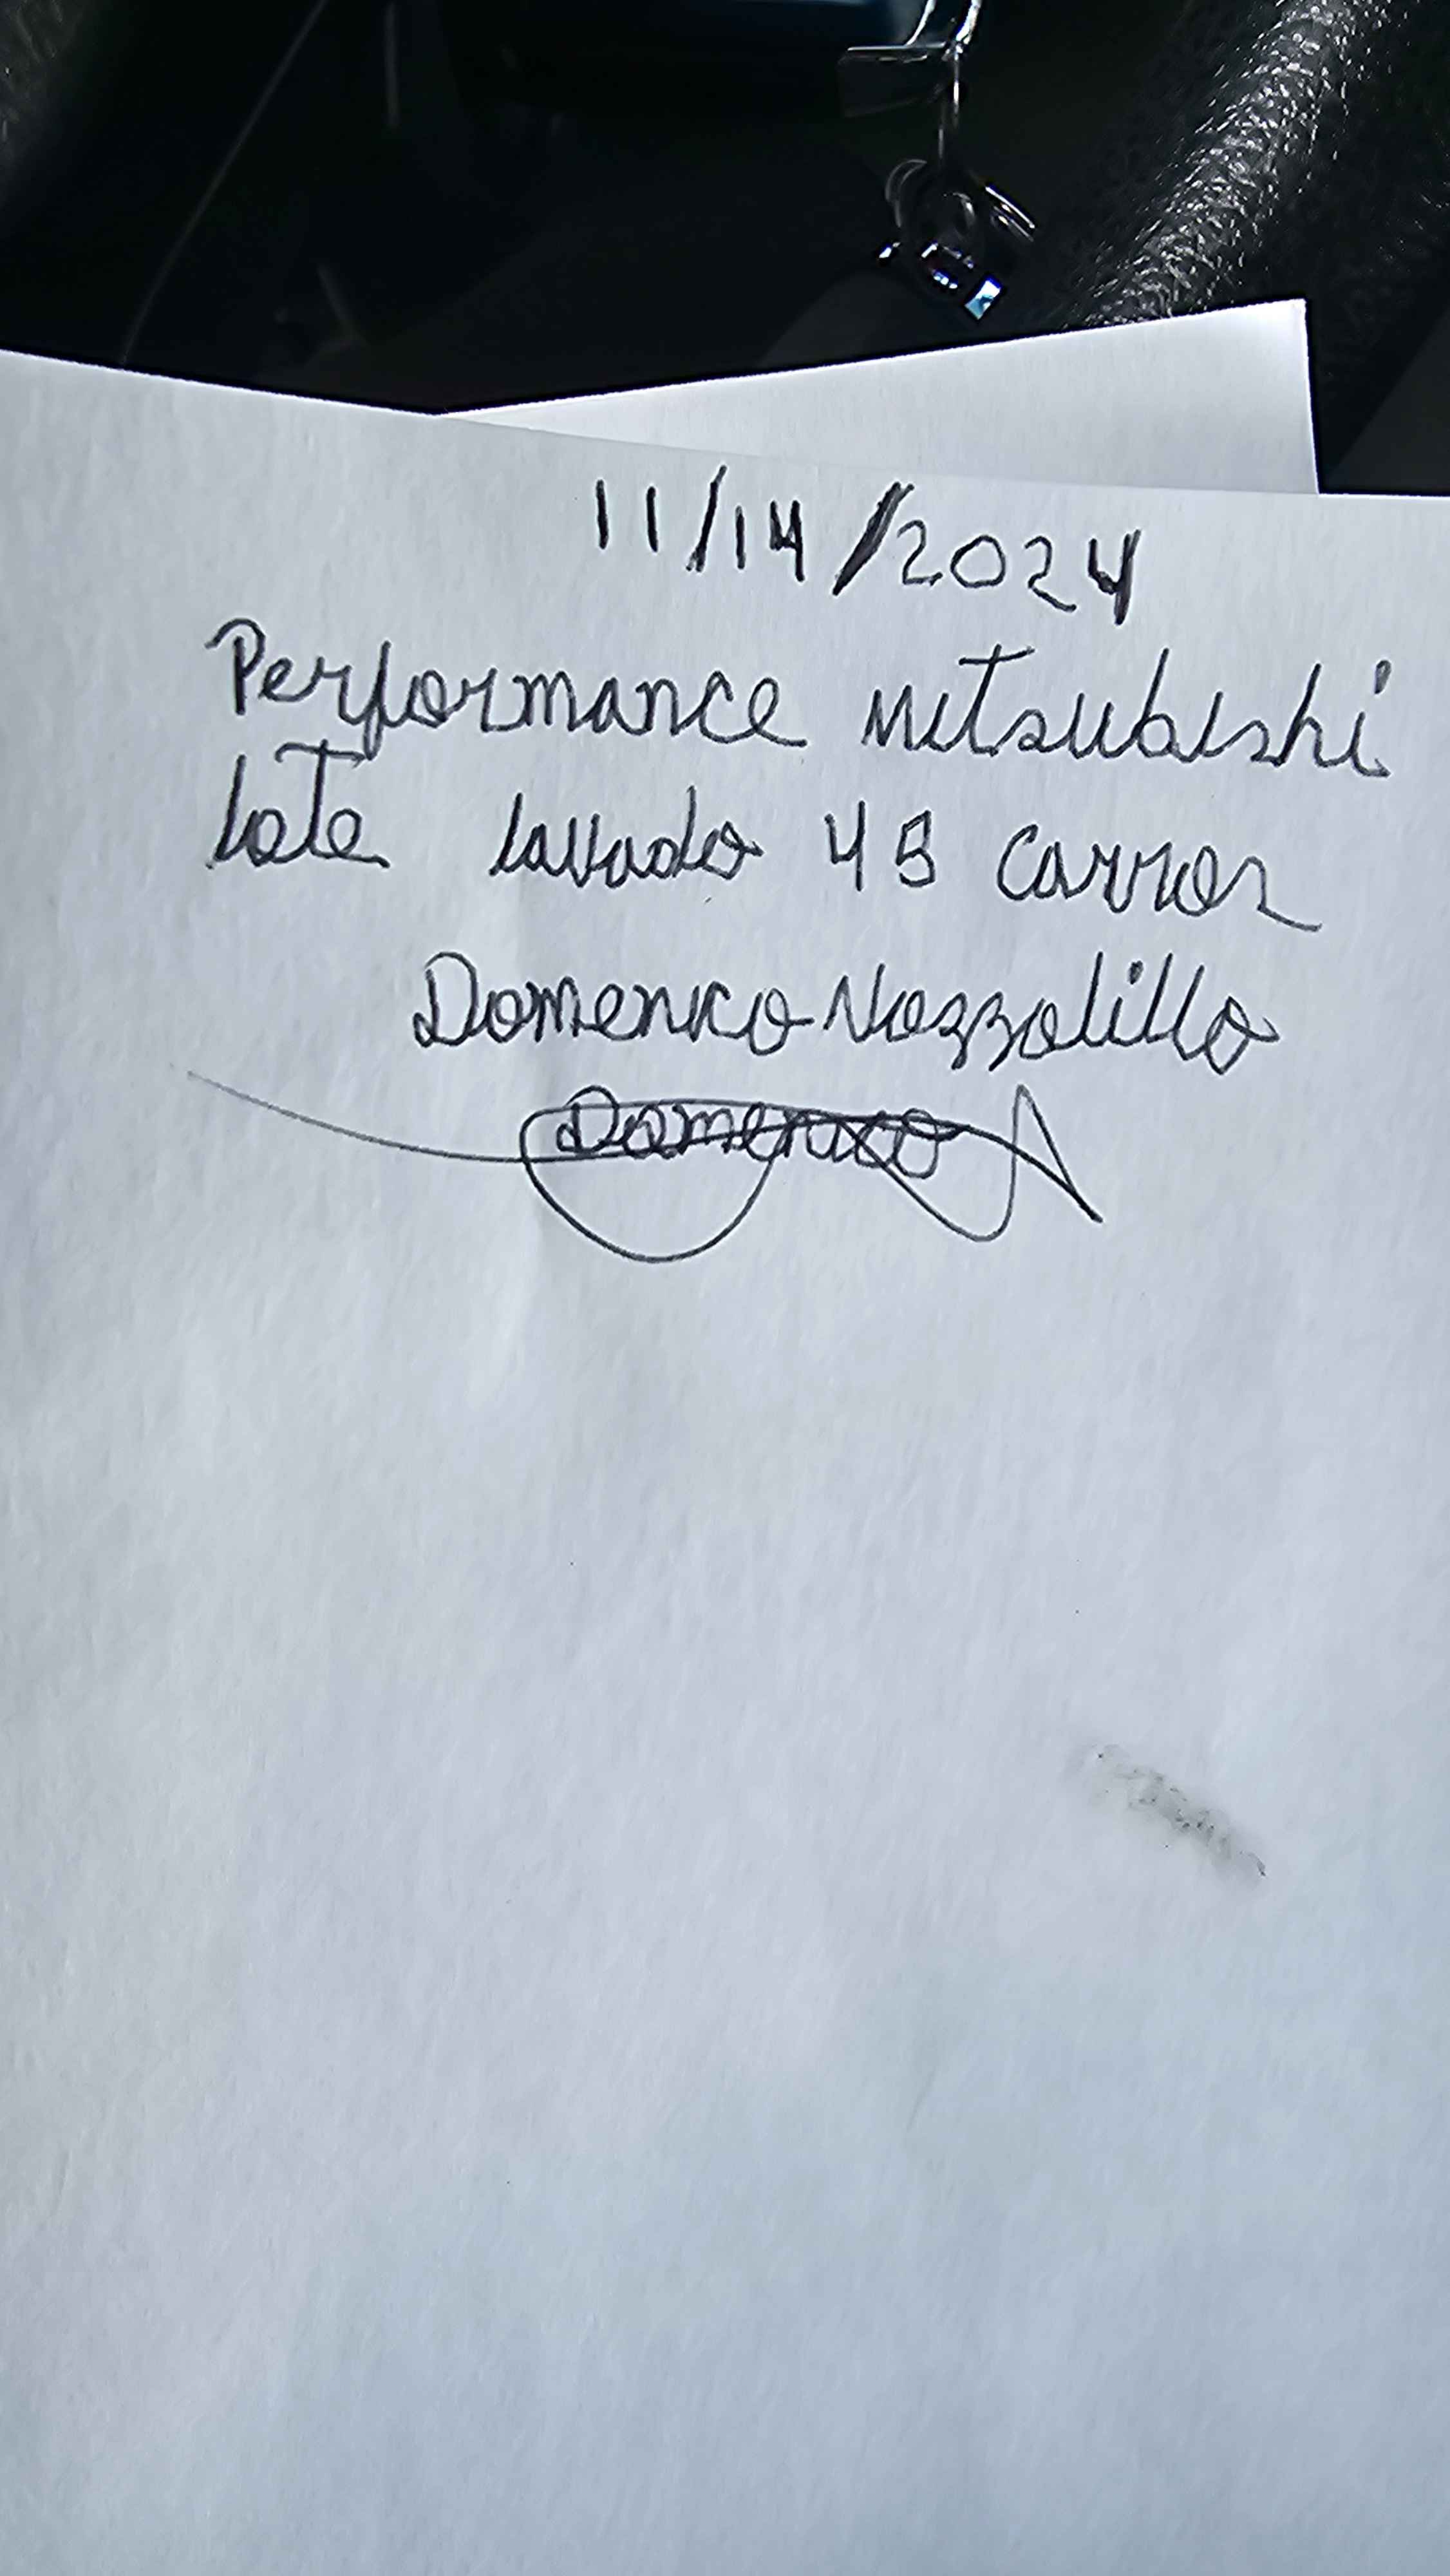 11/14/2024
Performance mitsubishi
Lote lavado 45 carros
Domenico Nozzolillo
Domenico